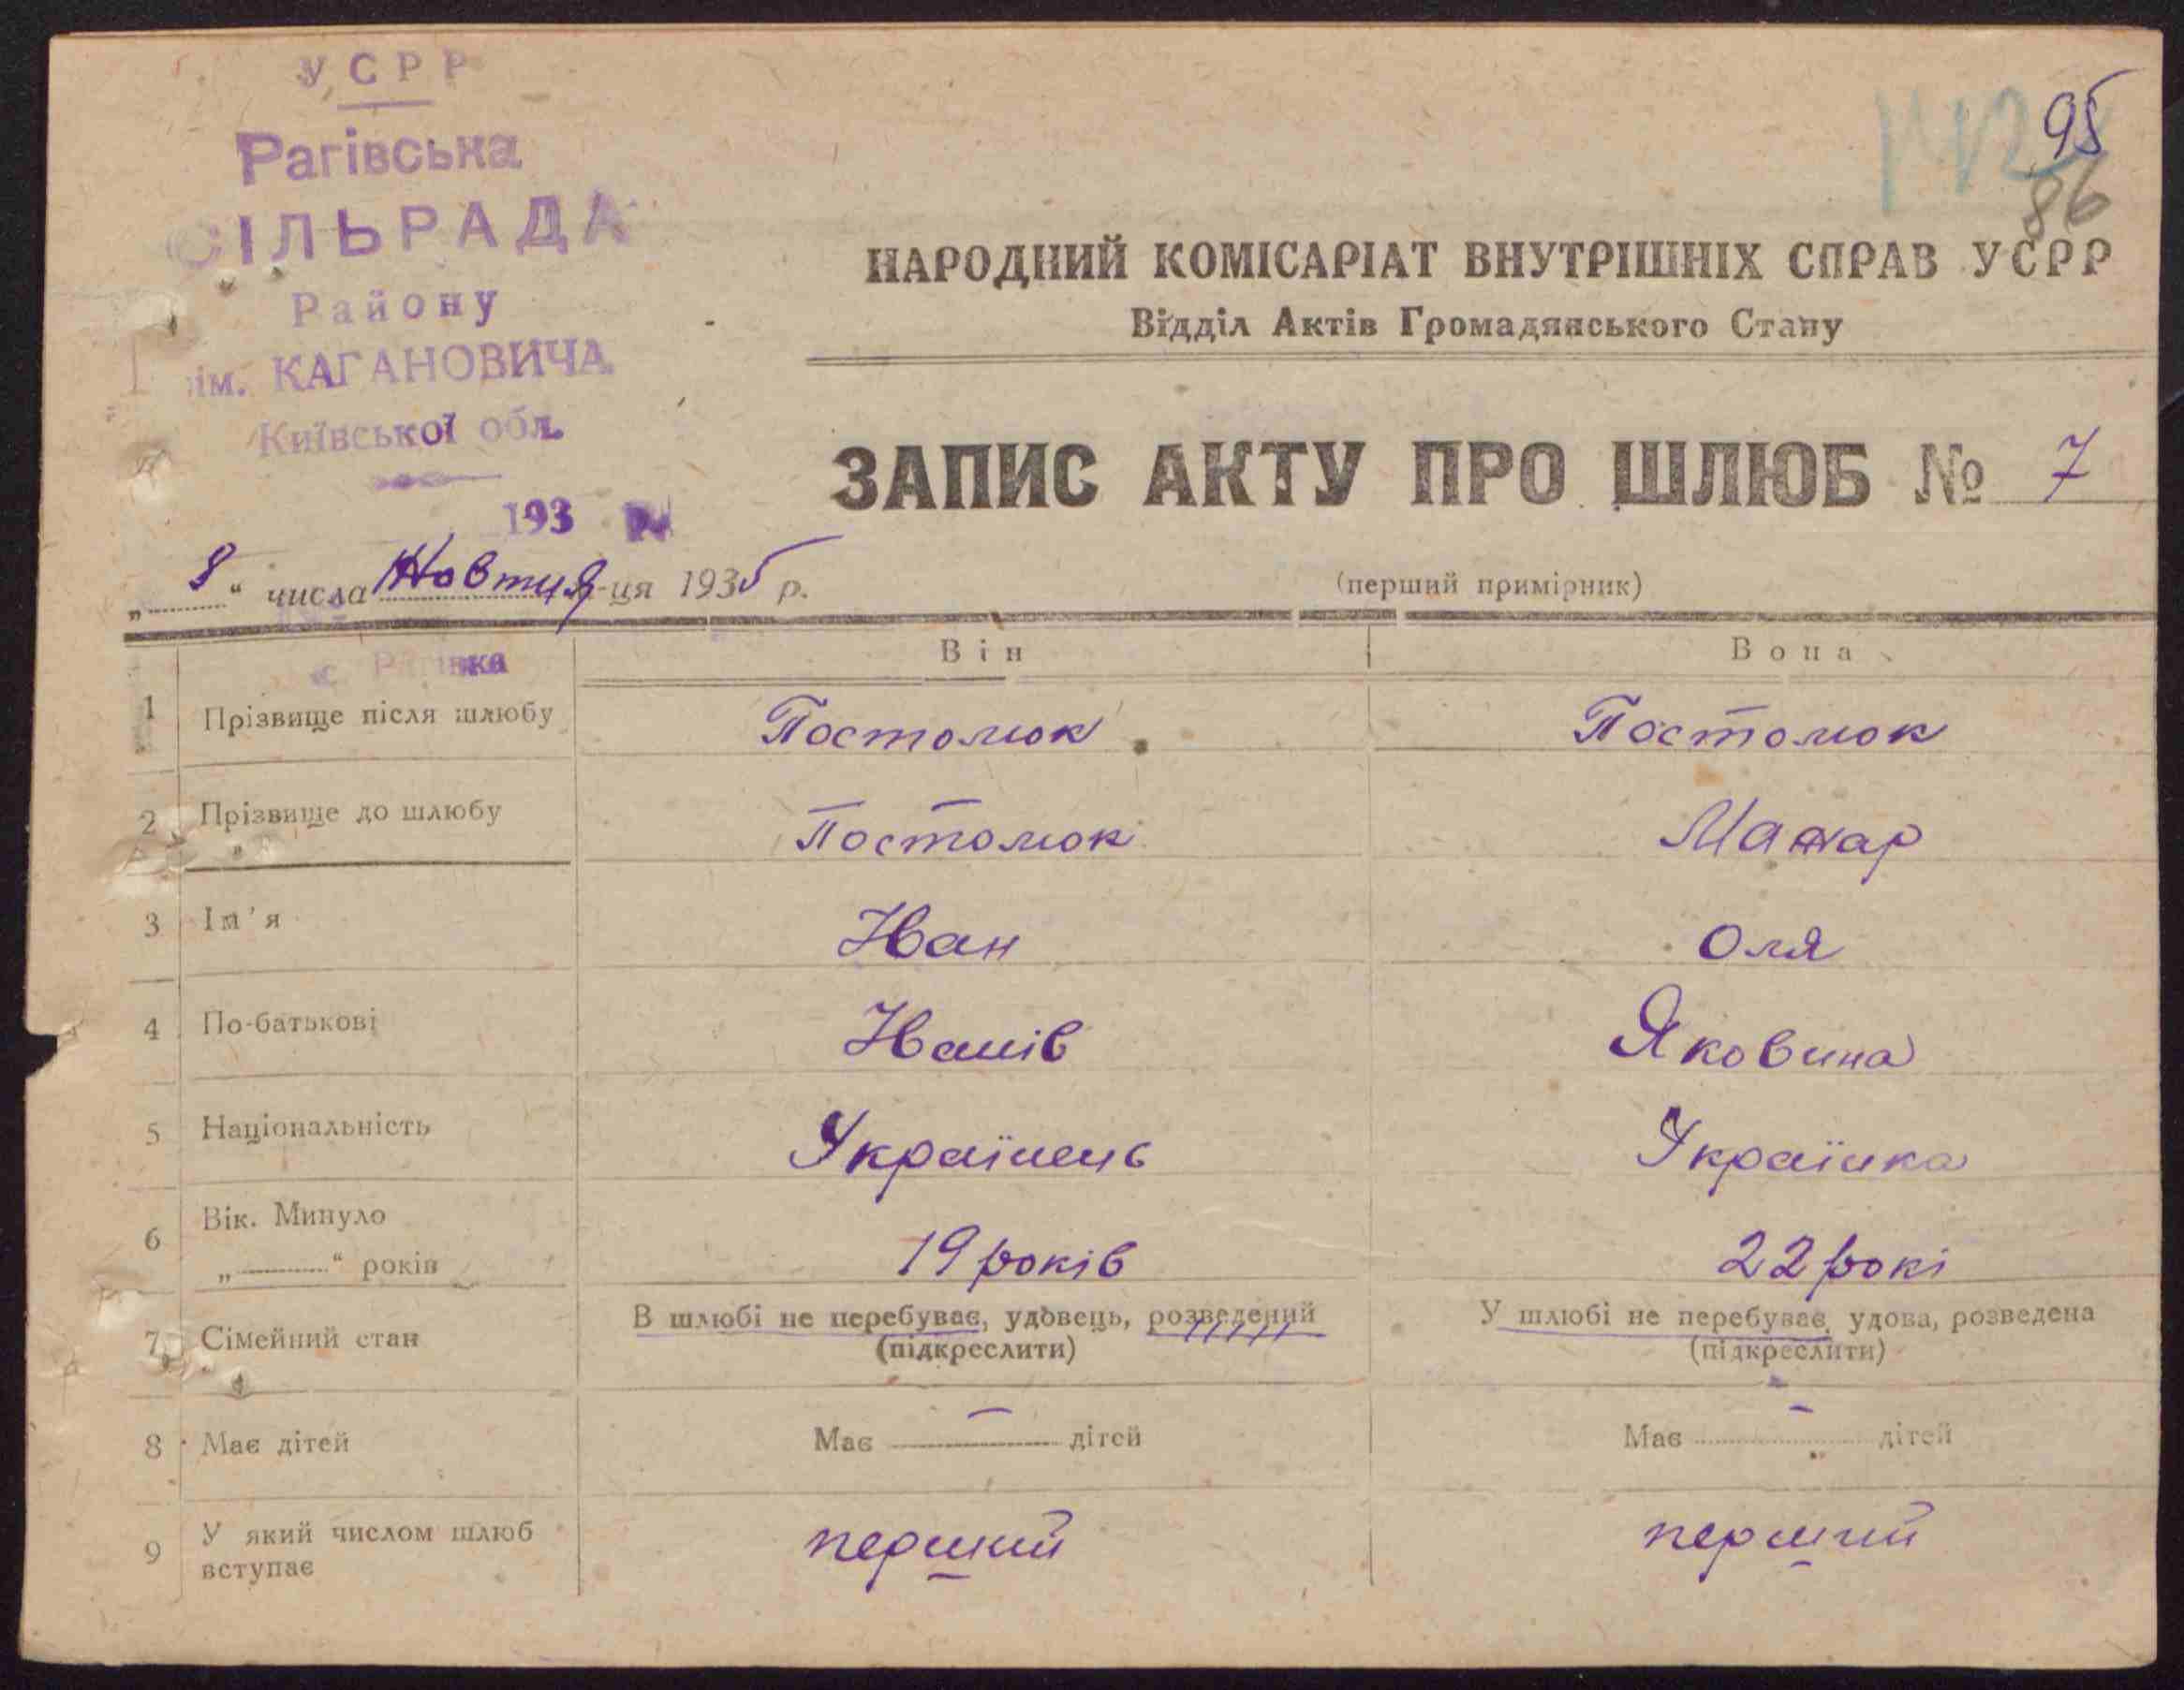 УСРР
Рагівська
СІЛЬРАДА
Району
ім. КАГАНОВИЧА
Київської обл.
193
с. Рагівка
95
86
НАРОДНИЙ КОМІСАРІАТ ВНУТРІШНІХ СПРАВ УСРР
Відділ Актів Громадянського Стану
ЗАПИС АКТУ ПРО ШЛЮБ № 7
„8“ числа Жовтня -ця 1935 р.
(перший примірник)
Він Вона
1 Прізвище після шлюбу Постолюк Постолюк
2 Прізвище до шлюбу Постолюк
3 Ім'я Іван Оля
4 По-батькові Іванів Яковина
5 Національність Українець Українка
6 Вік. Минуло
„ “ років 19 років 22 рокі
7 Сімейний стан В шлюбі не перебуває, удовець, розведений У шлюбі не перебуває, удова, розведена
(підкреслити) (підкреслити)
8 Має дітей Має — дітей Має — дітей
9 У який числом шлюб перший перший
вступає